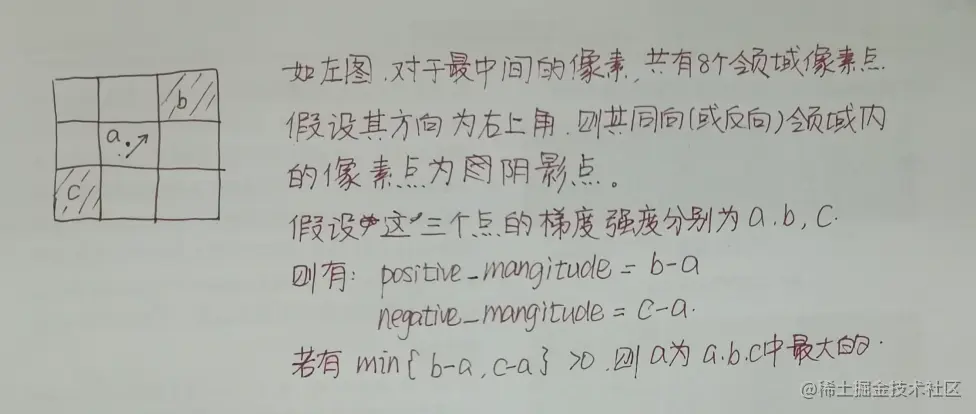 b
a
c
如左图,对于最中间的像素,共有8个领域像素点
假设其方向为右上角,则共同向(或反向)领域内
的像素点为图阴影点。
假设 这三个点的梯度强度分别为a.b,c.
则有: positive_mangitude = b-a
negative_mangitude = c-a.
若有 min{ b-a, c-a} >0.则a为a.b.c中最大的.
@稀土掘金技术社区